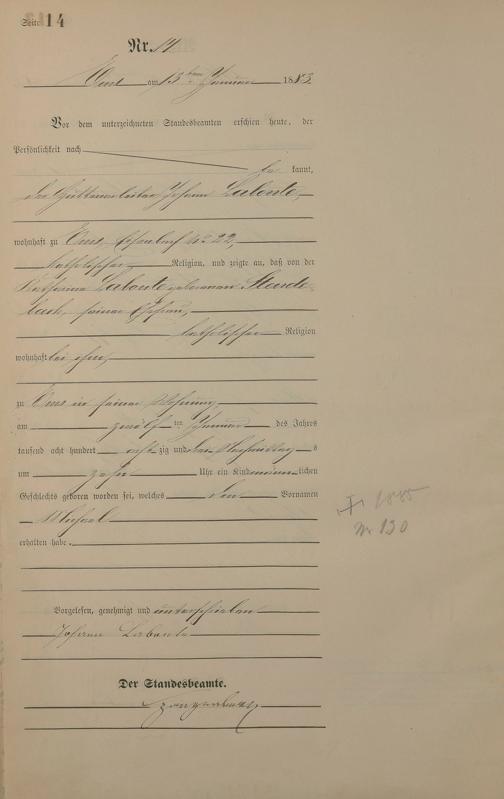 Seite 14
Nr. 14
Ems am 13ten Januar 1883
Vor dem unterzeichneten Standesbeamten erschien heute, der
Persönlichkeit nach
be kannt,
der Hüttenarbeiter Johann Labonte
wohnhaft zu Ems, No 22,
katholischer Religion, und zeigte an, daß von der
Katharina Labonte geborenen
seiner Ehefrau,
katholischer Religion
wohnhaft bei ihm,
zu Ems in seiner Wohnung
am zwölf ten Januar des Jahres
tausend acht hundert acht zig und drei Nachmittag s
um zehn Uhr ein Kind männ lichen
Geschlechts geboren worden sei, welches den Vornamen
Michael
erhalten habe.
Vorgelesen, genehmigt und unterschrieben
Johann Labonte
Der Standesbeamte.
1885
Nr 130